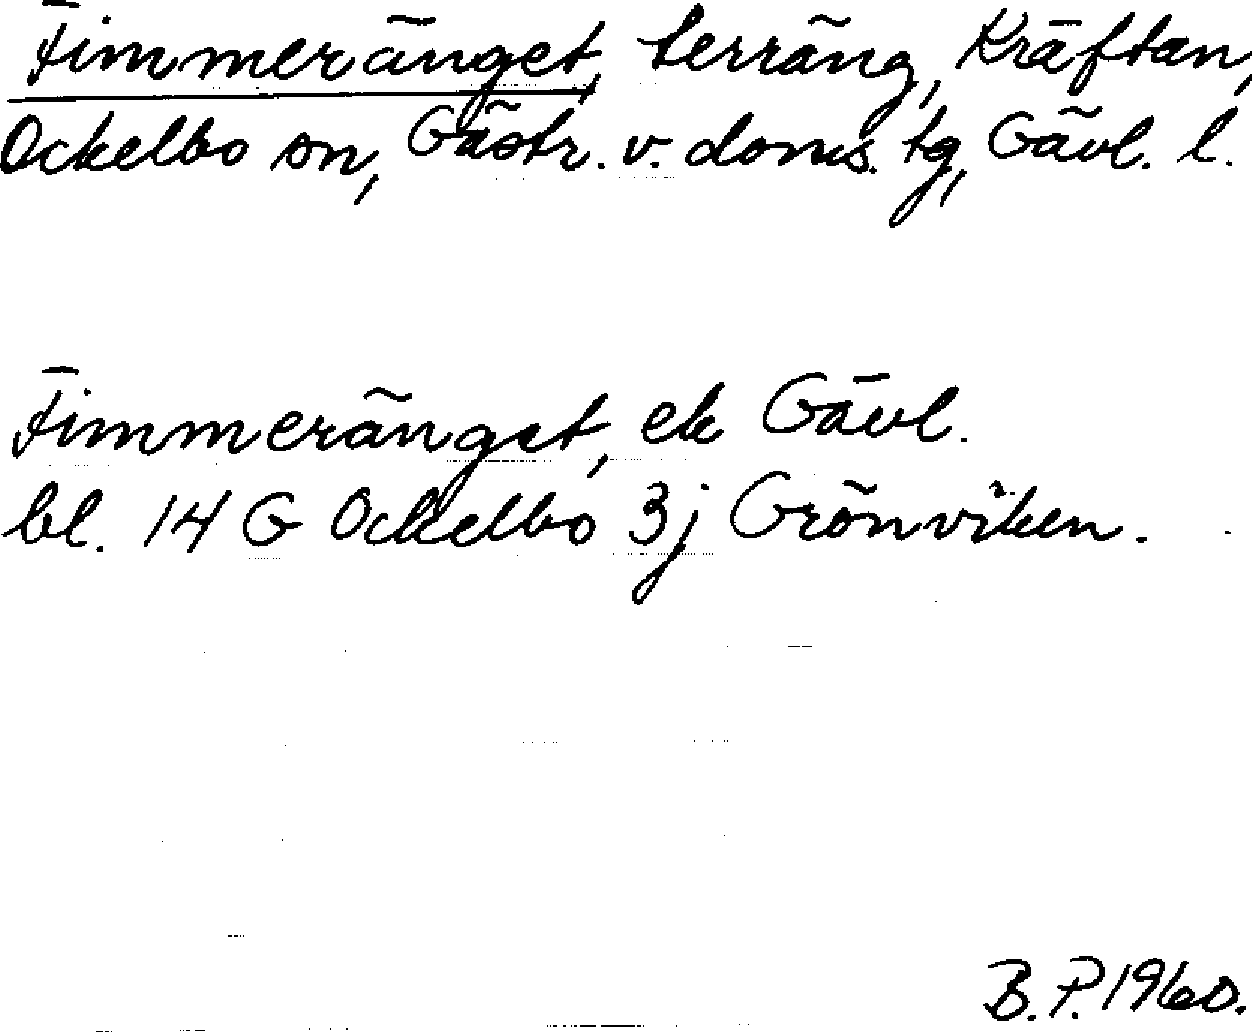 Timmeränget, terräng, Kräftan,
Ockelbo sn, Gästr. v. doms. tg, Gävl. l.
Timmeränget, ek Gävl.
bl. 14 G Ockelbo 3j Grönviken.
B.P. 1960.